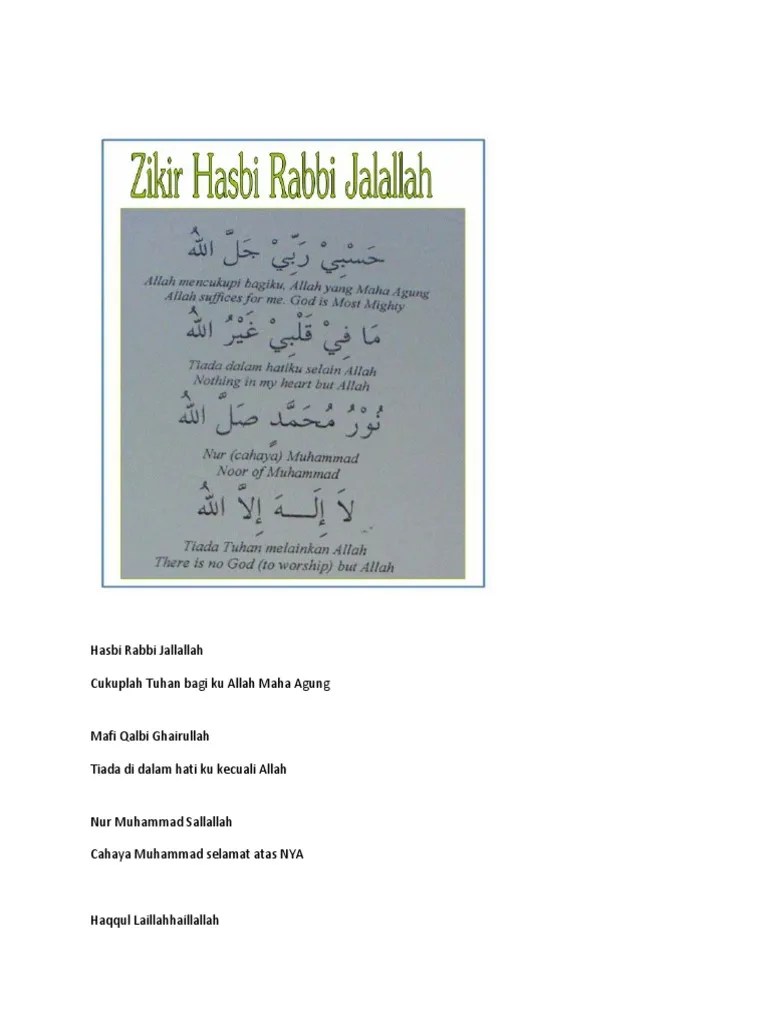 Zikir Hasbi Rabbi Jalallah
حَسْبِيْ رَبِّيْ جَلَّ اللهُ
Allah mencukupi bagiku, Allah yang Maha Agung
Allah suffices for me. God is Most Mighty
مَا فِيْ قَلْبِيْ غَيْرُ اللهُ
Tiada dalam hatiku selain Allah
Nothing in my heart but Allah
نُوْرُ مُحَمَّدٍ صَلَّ اللهُ
Nur (cahaya) Muhammad
Noor of Muhammad
لاَ إِلَـــهَ إِلاَّ اللهُ
Tiada Tuhan melainkan Allah
There is no God (to worship) but Allah
Hasbi Rabbi Jallallah
Cukuplah Tuhan bagi ku Allah Maha Agung
Mafi Qalbi Ghairullah
Tiada di dalam hati ku kecuali Allah
Nur Muhammad Sallallah
Cahaya Muhammad selamat atas NYA
Haqqul Laillahhaillallah